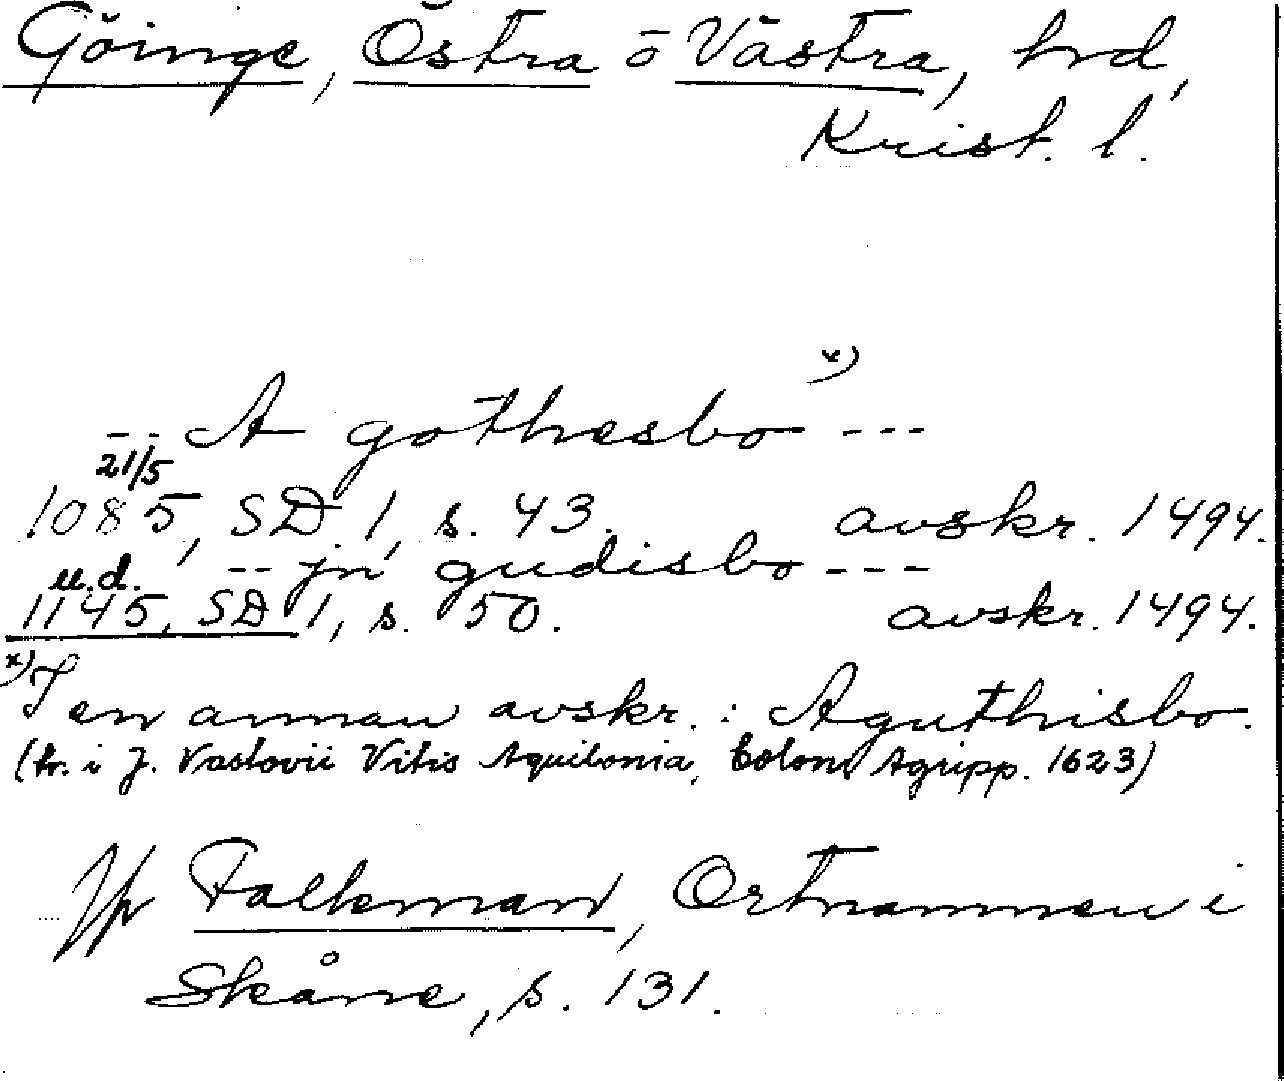 Göinge, Östra o Västra, hrd,
Krist. l.
-- A gothesbo x) ---
21/5
1085, SD 1, s. 43. avskr. 1494.
u.d. -- jn gudisbo ---
1145, SD 1, s. 50. avskr. 1494.
x) I en annan avskr. : Aguthisbo.
(tr. i J. Vastovii Vitis Aquilonia, Colon. Agripp. 1623)
Jfr Falkman, Ortnamnen i
Skåne, s. 131.